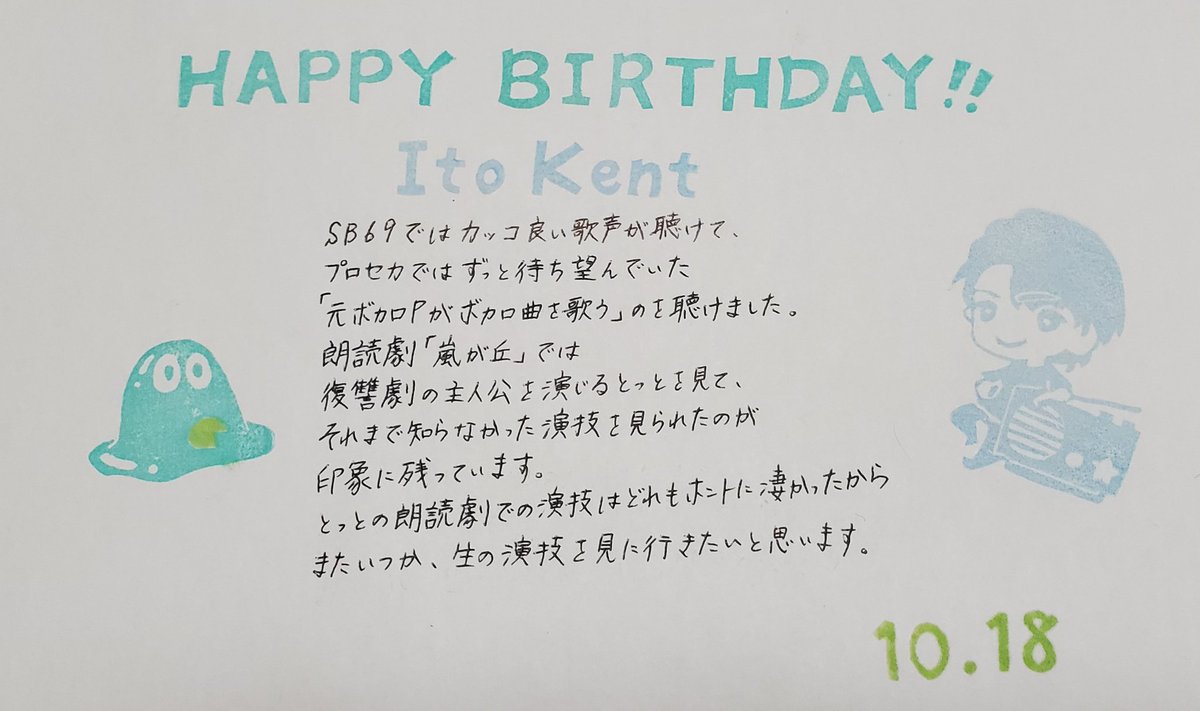 HAPPY BIRTHDAY!!
Ito Kent
SB69ではカッコ良い歌声が聴けて、
プロセカではずっと待ち望んでいた
「元ボカロPがボカロ曲を歌う」のを聴けました。
朗読劇「嵐が丘」では
復讐劇の主人公を演じるとっとを見て、
それまで知らなかった演技を見られたのが
印象に残っています。
とっとの朗読劇での演技はどれもホントに凄かったから
またいつか、生の演技を見に行きたいと思います。
10.18